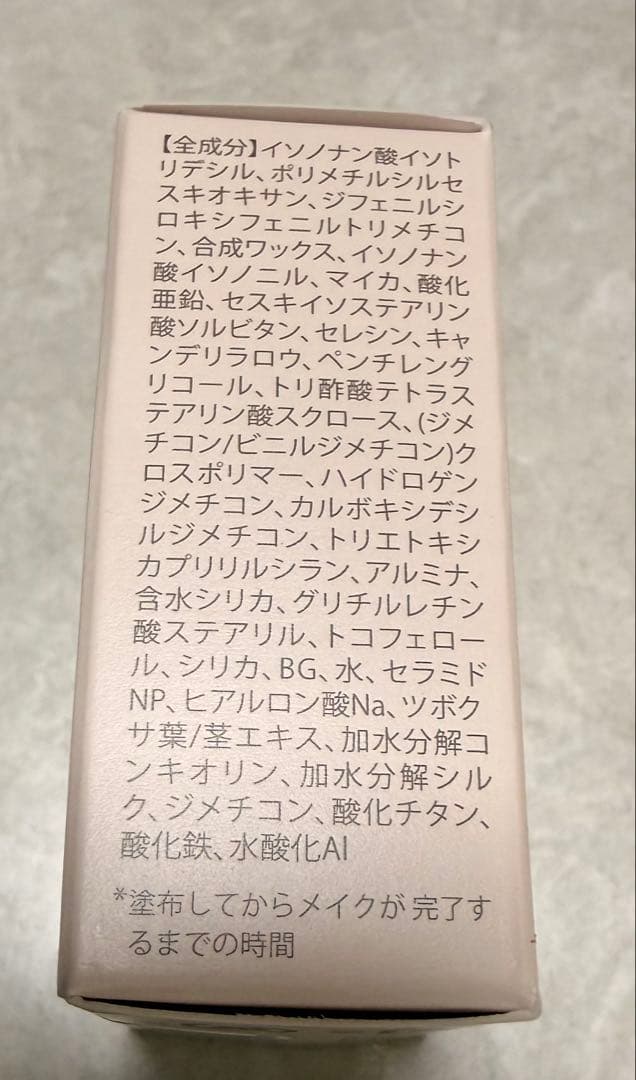 【全成分】イソノナン酸イソト
リデシル、ポリメチルシルセ
スキオキサン、ジフェニルシ
ロキシフェニルトリメチコ
ン、合成ワックス、イソノナン
酸イソノニル、マイカ、酸化
亜鉛、セスキイソステアリン
酸ソルビタン、セレシン、キャ
ンデリラロウ、ペンチレング
リコール、トリ酢酸テトラス
テアリン酸スクロース、(ジメ
チコン/ビニルジメチコン)ク
ロスポリマー、ハイドロゲン
ジメチコン、カルボキシデシ
ルジメチコン、トリエトキシ
カプリリルシラン、アルミナ、
含水シリカ、グリチルレチン
酸ステアリル、トコフェロー
ル、シリカ、BG、水、セラミド
NP、ヒアルロン酸Na、ツボク
サ葉/茎エキス、加水分解コ
ンキオリン、加水分解シル
ク、ジメチコン、酸化チタン、
酸化鉄、水酸化Al
*塗布してからメイクが完了す
るまでの時間